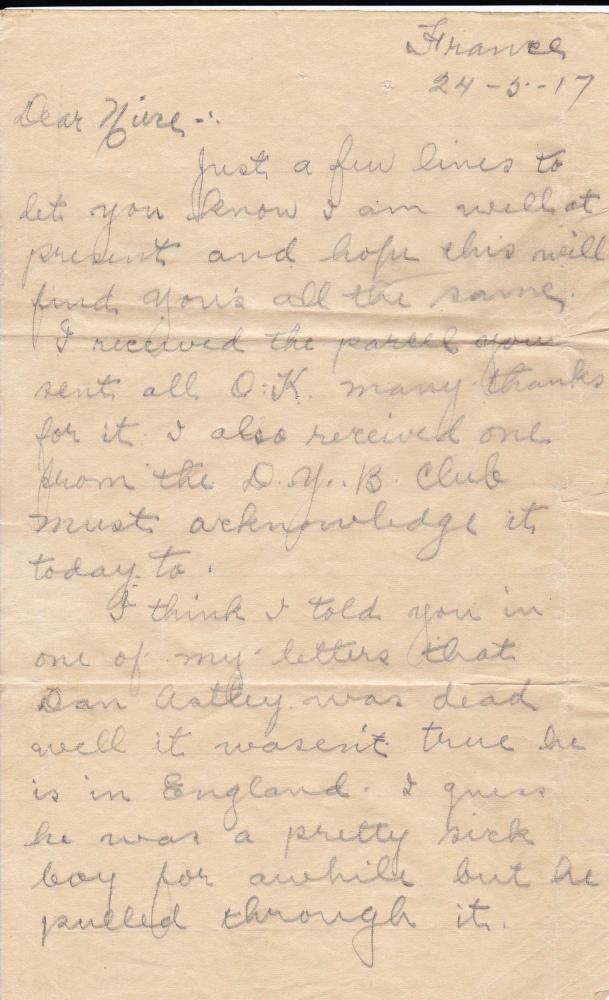 France
24-5-17
Dear
Just a few lines to
let you know I am well at
present and hope this will
find you's all the same.
I received the parcel you
sent all O.K. many thanks
for it. I also received one
from the D.Y.B. Club
must acknowledge it
today to.
I think I told you in
one of my letters that
Dan Astley was dead
well it wasen't true he
is in England. I guess
he was a pretty sick
boy for awhile but he
pulled through it.